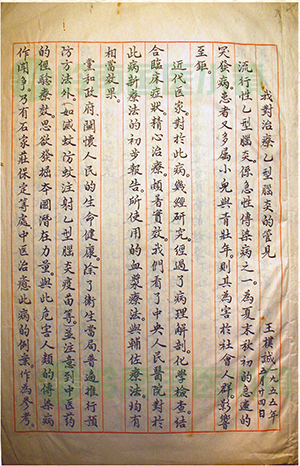 我對治療乙型腦炎的管見
王樸誠 一九五五年
五月十四日
流行性乙型腦炎係急性傳染病之一為夏末秋初的急遽的
哭發病。患者又多屬小兒與青壯年。則其為害於社會人群影響
至鉅。
近代医家對於此病幾經研究。經過了病理解剖化學檢查結
合臨床症狀精心治療。頗著實效我們看了中央人民醫院對於
此病新療法的初步報告。所使用的血漿療法與輔佐療法均有
相當效果。
黨和政府關懷人民的生命健康。除了衛生當局普遍推行預
防方法外。(如滅蚊防蚊注射乙型腦炎疫苗等。)並注意到中医药
的恒驗療效思欲發掘本國潛在力量與此危害人類的傳染病
作鬥爭。乃有石家莊保定等處中医治癒此病的例案。作為參考。